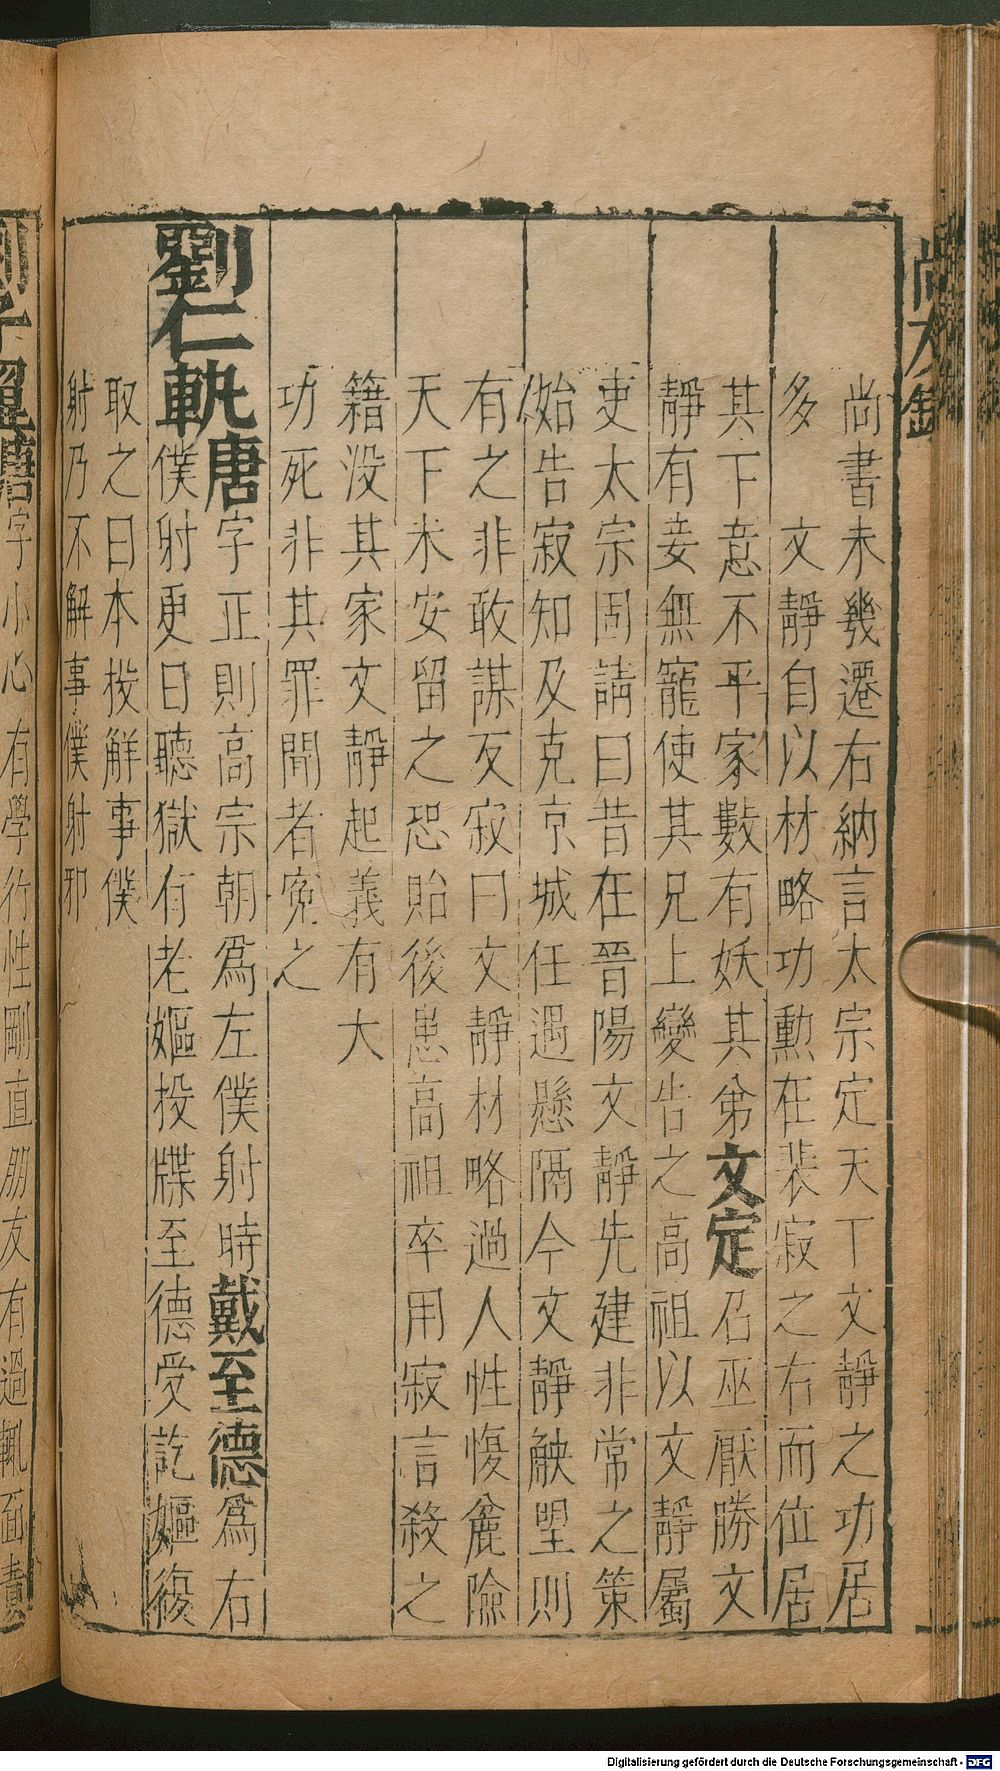 尚友錄
尚書未幾遷右納言太宗定天丁文靜之功居
多　文靜自以材略功勲在裴寂之右而位居
其下意不平家數有妖其弟文定召巫厭勝文
靜有妾無寵使其兄上變告之高祖以文靜屬
吏太宗固請曰昔在晉陽文靜先建非常之策
始告寂知及克京城任遇懸隔今文靜觖望則
有之非敢謀反寂曰文靜材略過人性愎麄險
天下未安留之恐貽後患高祖卒用寂言殺之
籍没其家文靜起義有大
功死非其罪聞者寃之
劉仁軌唐字正則高宗朝爲左僕射時戴至德爲右
僕射更日聽獄有老嫗投牒至德受訖嫗復
取之曰本投解事僕
射乃不解事僕射邪
字小心有學行性剛直朋友有過輒面責
Digitalisierung gefördert durch die Deutsche Forschungsgemeinschaft - DFG